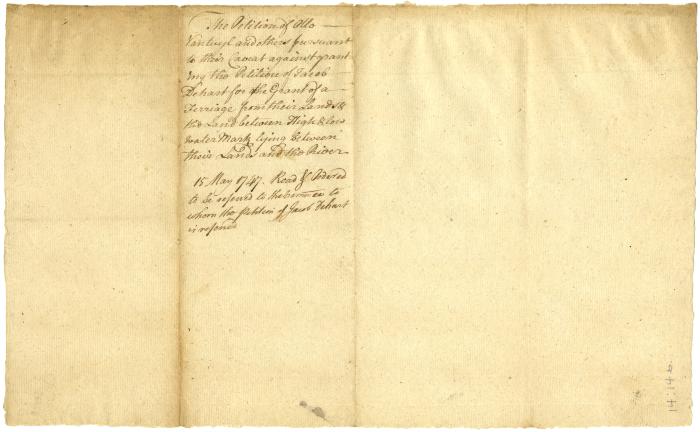 The Petition of Otto
Vantuyl and others pursuant
to their Caveat against grant
ing the Petition of Jacob
Dehart for the Grant of a
Ferriage from their Lands &
the Land between High & low
water Mark lying between
their Lands and the River
15 May 1747. Read & Ordered
to be referred to the
whom the Petition of Jacob Dehart
is referred
14:146